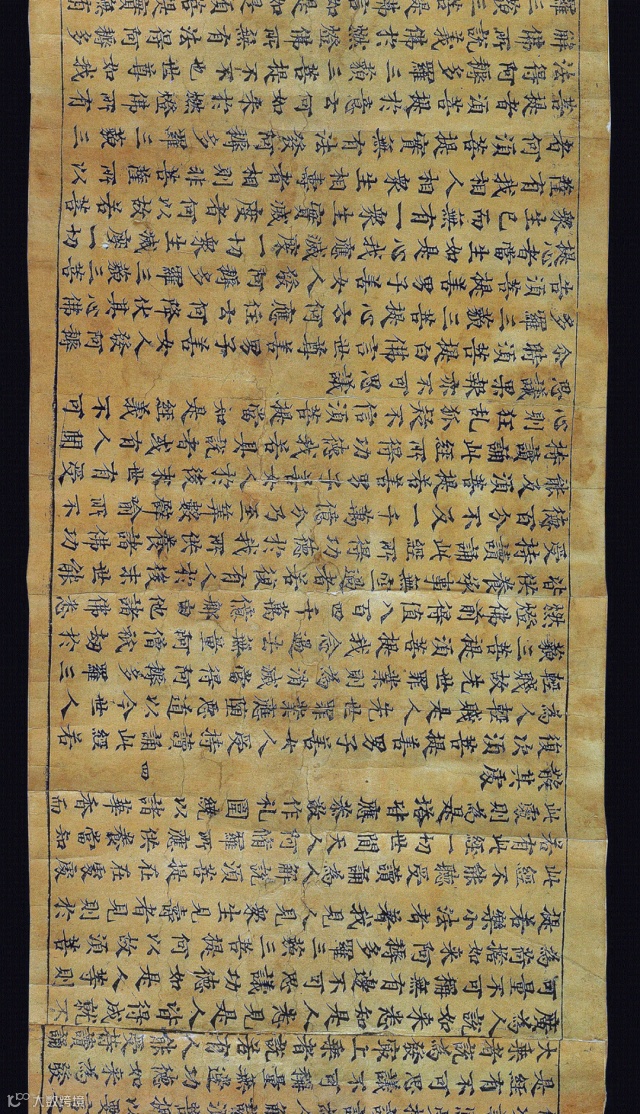 是經有不可思議不可稱量無邊功德如來為發
大乘者說為發最上乘者說若有人能受持讀誦
廣為人說如來悉知是人悉見是人皆得成就不
可量不可稱無有邊不可思議功德如是人等則
為荷擔如來阿耨多羅三藐三菩提何以故須菩
提若樂小法者著我見人見眾生見壽者見則於
此經不能聽受讀誦為人解說須菩提在在處處
若有此經一切世間天人阿脩羅所應供養當知
此處則為是塔皆應恭敬作礼圍繞以諸華香而
散其處 四
復次須菩提善男子善女人受持讀誦此經若
為人輕賤是人先世罪業應墮惡道以今世人
輕賤故先世罪業則為消滅當得阿耨多羅三
藐三菩提須菩提我念過去無量阿僧祇劫於
燃燈佛前得值八百四千萬億那由他諸佛悉
皆供養承事無空過者若復有人於後末世能
受持讀誦此經所得功德於我所供養諸佛功
德百分不及一千萬億分乃至筭數譬喻所不
能及須菩提若善男子善女人於後末世有受
持讀誦此經所得功德我若具說者或有人聞
心則狂乱狐疑不信須菩提當知是經義不可
思議果報亦不可思議
尒時須菩提白佛言世尊善男子善女人發阿耨
多羅三藐三菩提心云何應住云何降伏其心佛
告須菩提善男子善女人發阿耨多羅三藐三菩
提心者當生如是心我應滅度一切眾生滅度一切
眾生已而無有一眾生實滅度者何以故若菩
薩有我相人相眾生相壽者相則非菩薩所以
者何須菩提實無有法發阿耨多羅三藐三
菩提者須菩提於意云何如來於燃燈佛所有
法得阿耨多羅三藐三菩提不不也世尊如我
解佛所說義佛於燃燈佛所有法得阿耨多
大数跨境